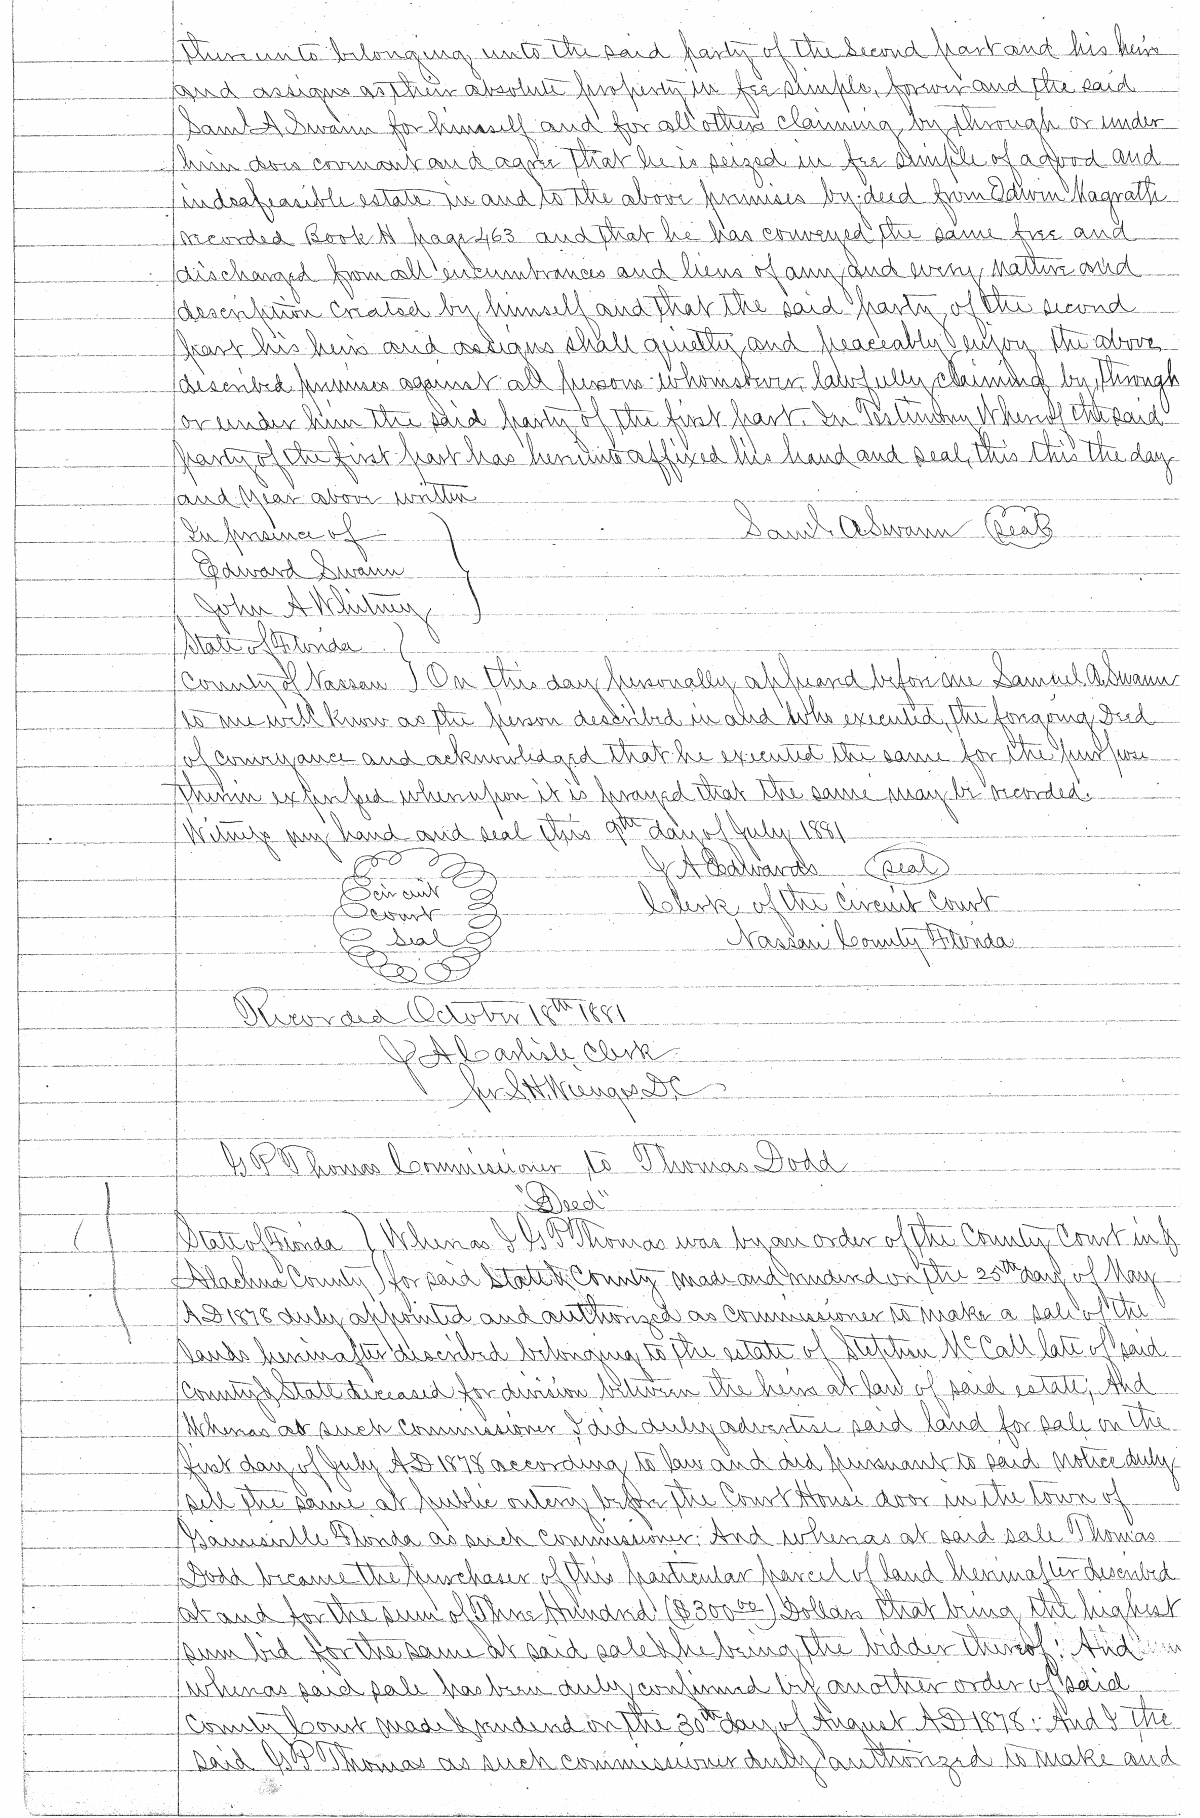 thereunto belonging unto the said party of the Second part and his heirs
and assigns as their absolute property in fee simple, forever and the said
Saml A Swann for himself and for all others claiming by through or under
him does covenant and agree that he is seized in fee simple of a good and
indeafeasible estate in and to the above premises by deed from Edwin Magrath
recorded Book H page 463 and that he has conveyed the same free and
discharged from all encumbrances and liens of any and every nature and
description created by himself and that the said party of the second
part his heirs and assigns shall quietly and peaceably enjoy the above
described premises against all persons whomsoever lawfully claiming by, through
or under him the said party of the first part. In Testimony Whereof the said
party of the first part has hereunto affixed his hand and seal, this this the day
and year above written
In presence of
Saml. A Swann (seal)
Edward Swann
John A Whitney
State of Florida
County of Nassau } On this day personally appeared before me Samuel A. Swann
to me well know as the person described in and who executed, the foregoing Deed
of conveyance and acknowledged that he executed the same for the purpose
therein expressed whereupon it is prayed that the same may be recorded.
Witness my hand and seal this 9th day of July 1881
J A Edwards (seal)
circuit
court
seal
Clerk of the Circuit Court
Nassau County Florida
Recorded October 18th 1881
J A Carlisle Clerk
per S.H. D.C
G P Thomas Commissioner to Thomas Dodd
"Deed"
State of Florida } Whereas I G P Thomas was by an order of the County Court in &
Alachua County } for said State & County made and rendered on the 25th day of May
AD 1878 duly appointed and authorized as commissioner to make a sale of the
lands hereinafter described belonging to the estate of Stephen McCall late of said
County & State deceased for division between the heirs at law of said estate; And
Whereas as such commissioner I did duly advertise said land for sale on the
first day of July AD 1878 according to law and did pursuant to said notice duly
sell the same at public outcry before the Court House door in the town of
Gainesville Florida as such commissioner: And whereas at said sale Thomas
Dodd became the purchaser of this particular parcel of land hereinafter described
at and for the sum of Three Hundred ($300 00) Dollars that being the highest
sum bid for the same at said sale & he being the bidder thereof: And
whereas said sale has been duly confirmed by another order of said
County Court made & rendered on the 30th day of August AD 1878: And I the
said G P Thomas as such commissioner duly authorized to make and